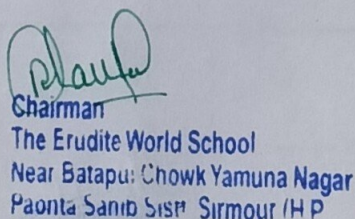 Chairman
The Erudite World School
Near Batapu: Chowk Yamuna Nagar
Paonta Sahib Sirmour (H.P